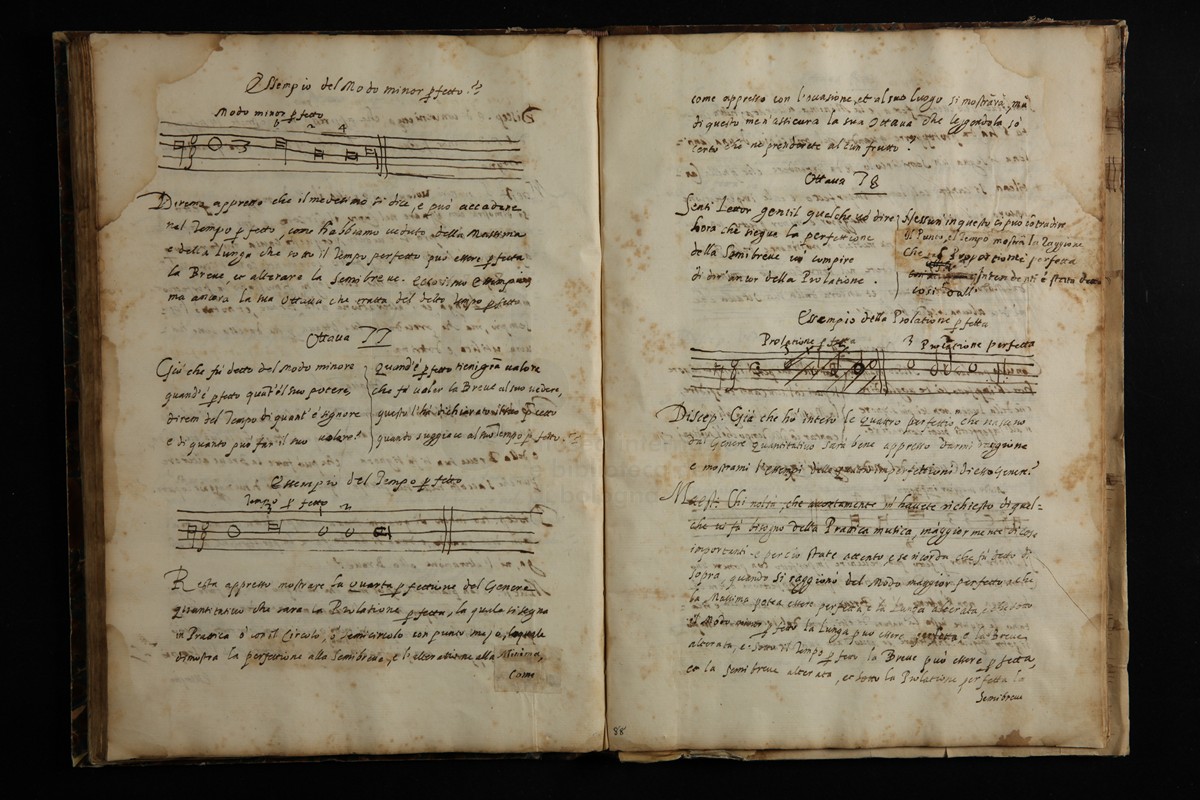 Essempio del Modo minor pfetto
Modo minor pfetto
6 2 4
Diremo appresso che il medesimo si dice e può accadere
nel Tempo pfetto, come habbiamo veduto della Massima
e della Lunga che sotto il Tempo perfetto può essere pfetta
la Breve, et alterare la Semibreve. Ecco il suo Essempio
ma ancora la sua Ottava che tratta del detto tempo pfetto
Ottava 77
Già che fù detto del Modo minore
quand'è pfetto quāt'è il suo potere,
direm del Tempo di quant'è signore
e di quanto può far il suo valore
Quand'è pfetto tien gran valore
che fà valer la Breve al suo vedere,
questo l'hà dichiarato
quanto suggiace al Tempo pfetto
Essempio del Tempo pfetto
Tempo pfetto
3 1 2
Resta appresso mostrare la quarta pfettione del Genere
quantitativo che sarà la Prolatione pfetta, la quale si segna
in Prattica ò con il Circolo, ò semicircolo con punto in
dimostra la perfettione alla Semibreve, e l'alteratione alla Minima,
Come
come appresso con l'occasione, et al suo luogo si mostrarà, ma
di questo me n'assicura la sua Ottava che leggendola sò
certo che ne prenderete alcun frutto
Ottava 78
Senti Lettor gentil quel che vò dire
hora che siegue la perfettione
della Semibreve
di dir' ancor della Prolatione.
Nessun in questo ci può cōtradire
Il Punto, e'l Tempo mostra la Raggione
Che proportione perfetta
Intendenti è
così
Essempio della Prolatione pfetta
Prolatione pfetta
3 Prolatione perfetta
Discep. Già che hò inteso le quattro perfettioni che nascano
dal Genere Quantitativo sarà bene appresso darmi raggione
e mostrarmi l'essempi delle quattro imperfettioni di esso Genere.
Maest. Chi nol sà, che accortamente m'havete richiesto di quel=
che vi fà bisogno della Prattica musica, maggiormente di cose
importanti e perciò state attento, e se ricorda che fù detto di
sopra quando si raggionò del Modo maggior perfetto
la Massima potea essere perfetta e la Lunga alterata, e sotto
il Modo minor pfetto la Lunga può essere perfetta e la Breve
alterata, e sotto il Tempo pfetto la Breve può essere pfetta,
et la Semibreve alterata, et sotto la Prolatione perfetta la
Semibreve
88